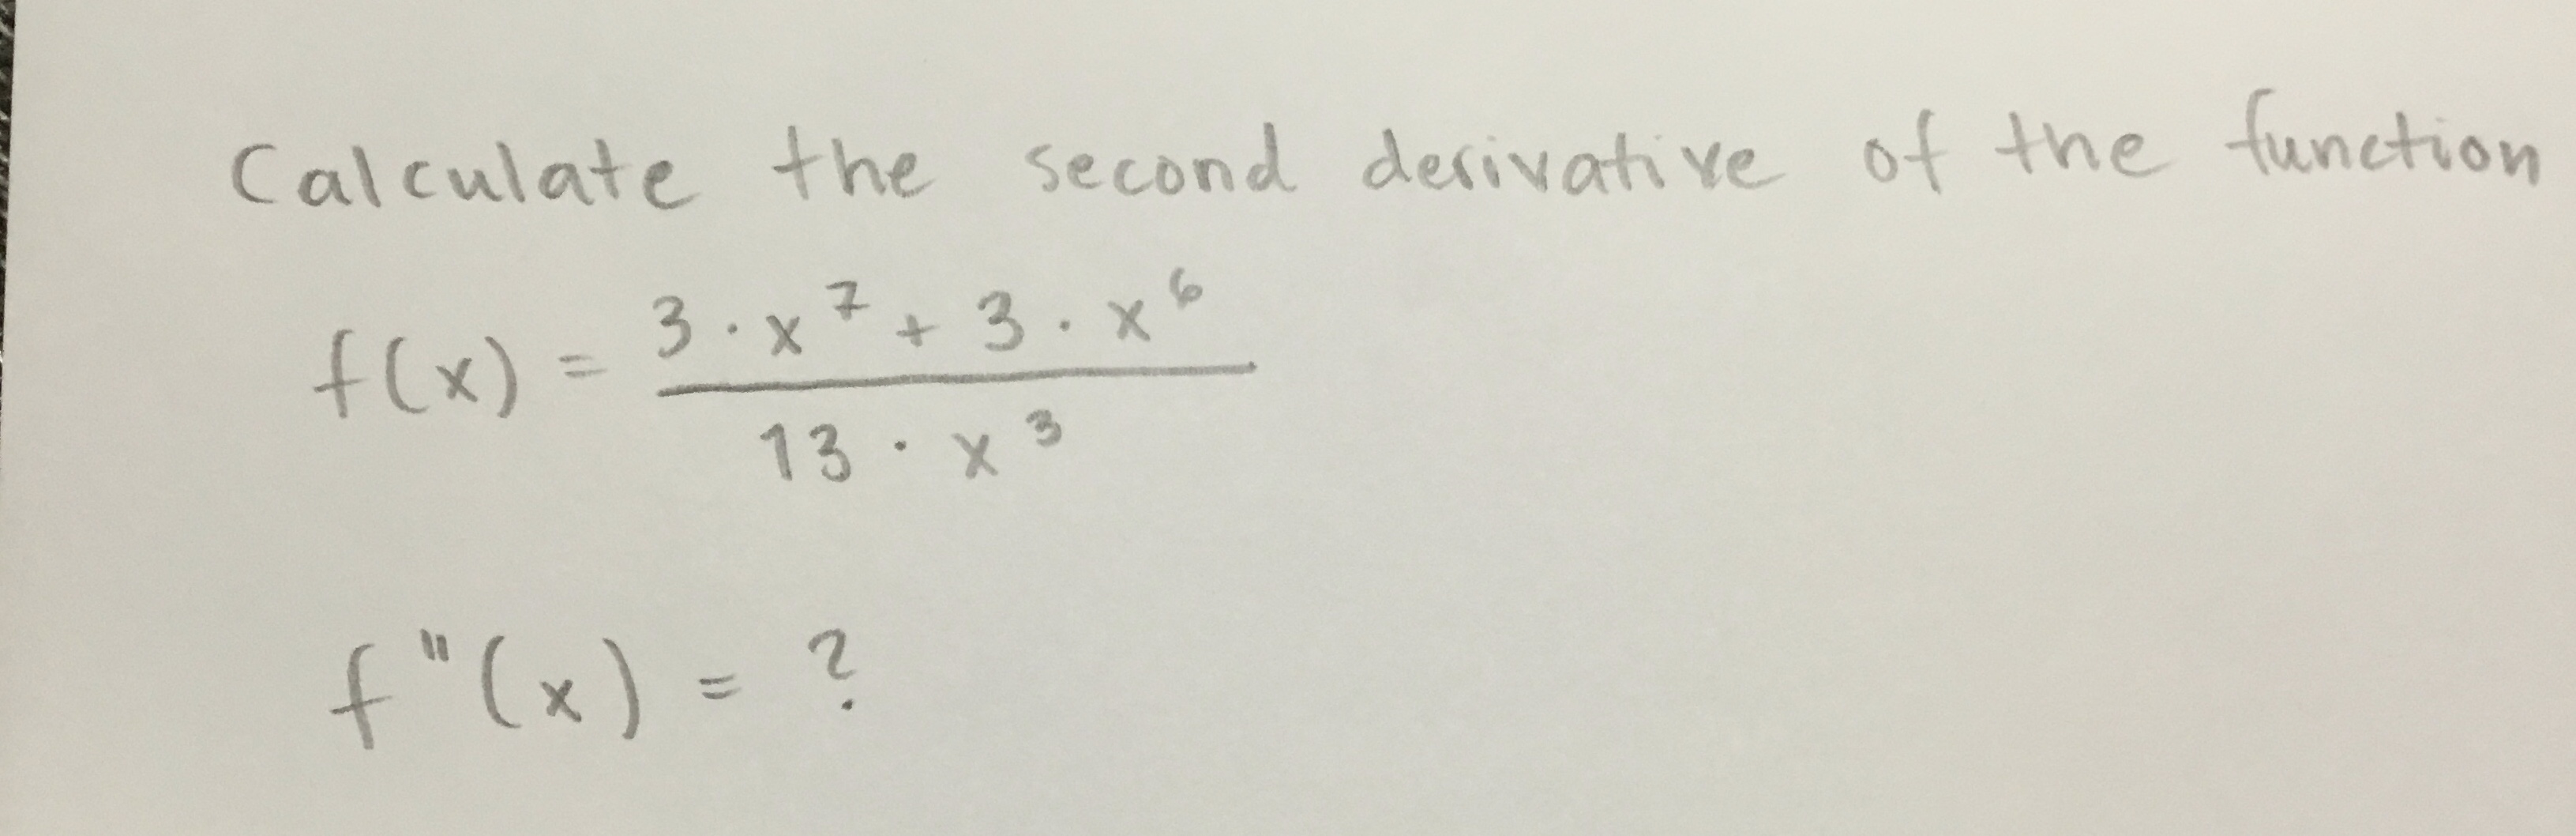 Calculate the second derivative of the function
f(x) = \frac{3 · x^7 + 3 · x^6}{13 · x^3}
f"(x) = ?